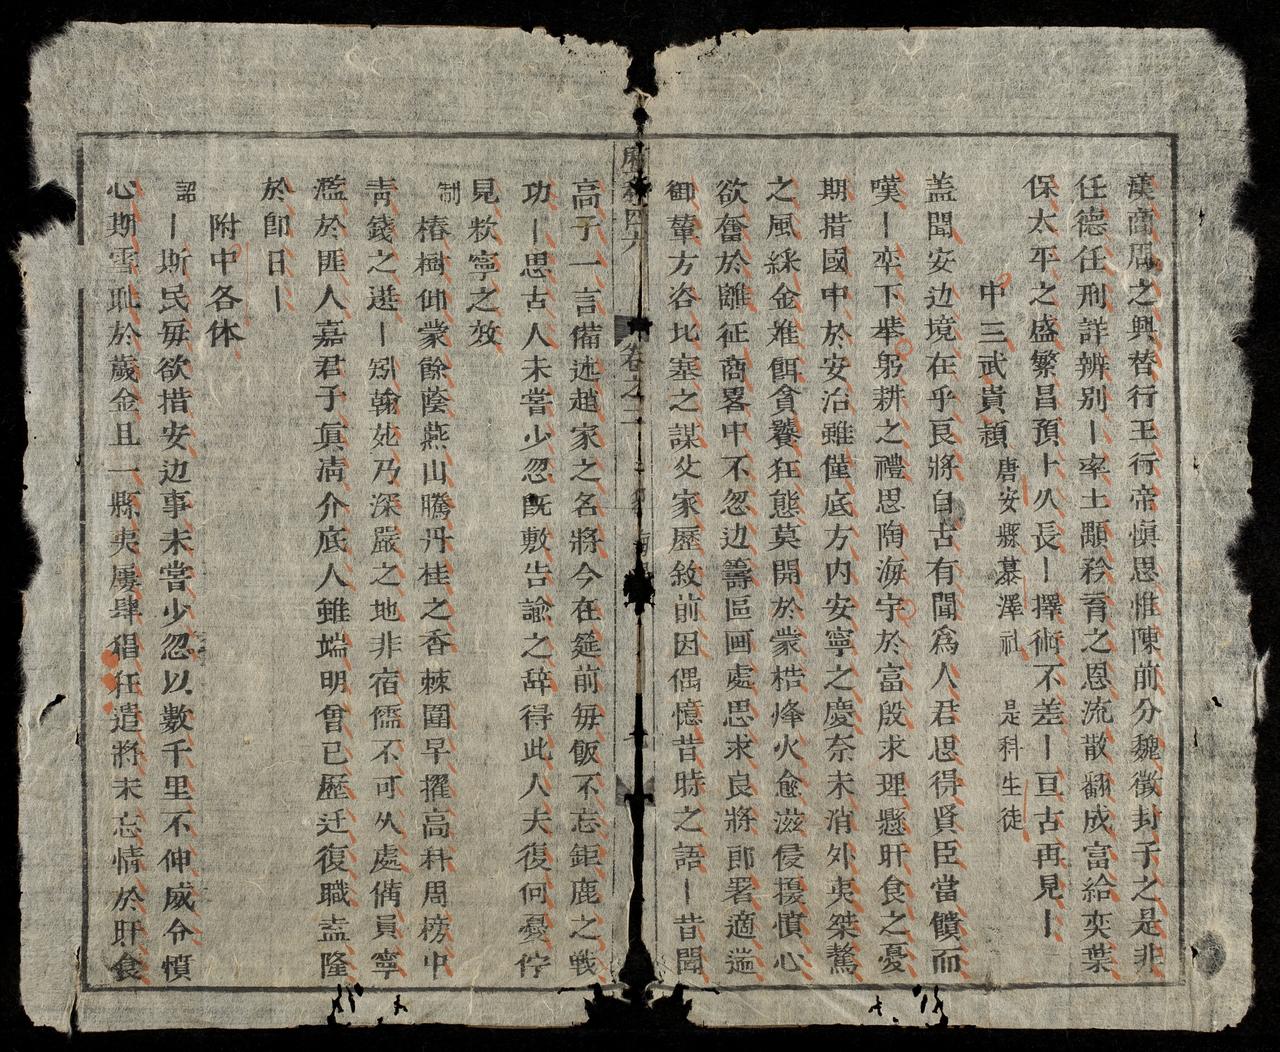 漢商周之興替行王行帝愼思惟陳前分魏徵封子之是非
任德任刑詳辨别｜率土顒矜育之恩流散翻成富給奕葉
保太平之盛繁昌預卜久長｜擇術不差｜亘古再見｜
中三武貴 唐安縣慕澤社 是科生徒
盖聞安边境在乎良將自古有聞爲人君思得賢臣當饋而
嘆｜𠅤下 躬耕之禮思陶海宇於富殷求理懸旰食之憂
期措國中於安治雖僅底方内安寧之慶奈未消外夷桀驁
之風綵金难餌貪饕狂態莫開於蒙梏烽火愈滋侵擾憤心
欲奮於雖征商畧中不忽边籌區画處思求良將郎署適遄
御輦方咨圮塞之謀父家歷敘前因偶憶昔時之語｜昔聞
卷之二
高子一言備述趙家之名將今在筵前每飯不忘鉅鹿之戦
功｜思古人未嘗少忽旣敷告諭之辞得此人夫復何憂佇
見敉寧之效
制 椿樹仰蒙餘蔭燕山騰丹桂之香棘圍早擢高科周榜中
靑錢之選｜矧翰苑乃深嚴之地非宿儒不可以處備員寧
濫於匪人嘉君子眞淸介底人雖端明曾已歷迁復職盍隆
於卽日｜
附中各体
詔｜斯民每欲措安边事未當少忽以數千里不伸威令憤
心期雪耻於歲金且一縣夷屢肆猖狂遣將未忘情於旰食